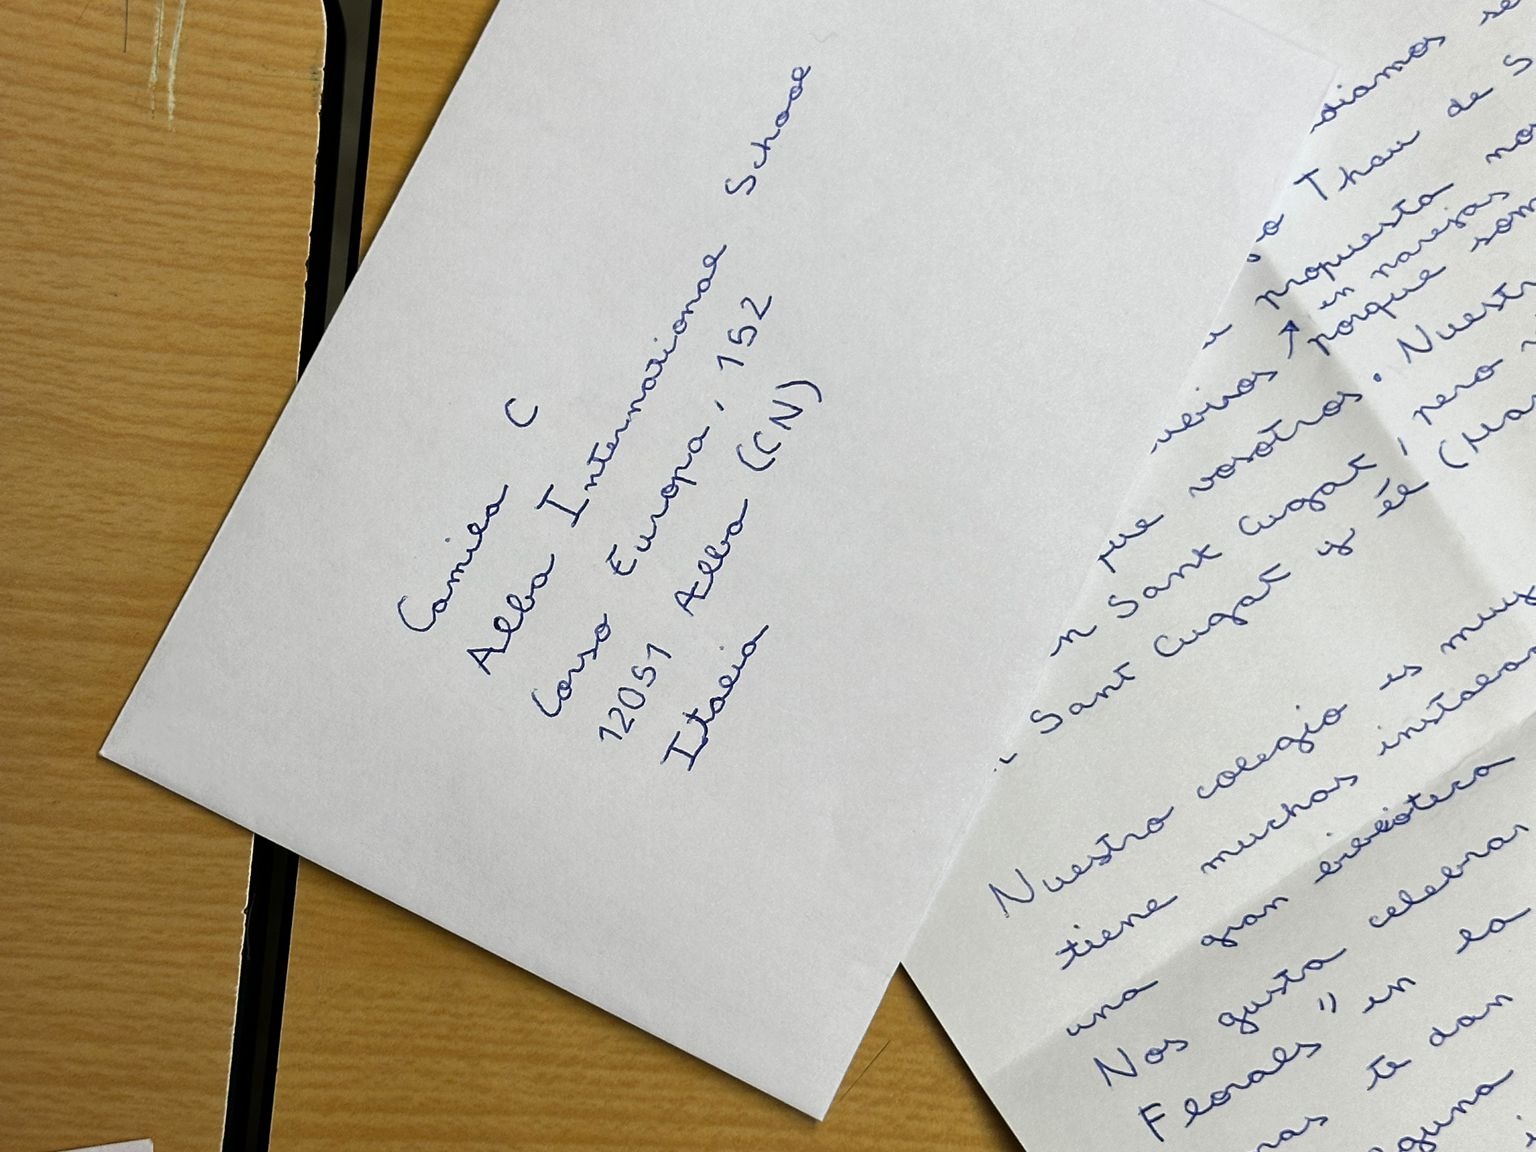 Camila C
Alba International School
Corso Europa, 152
12051 Alba (CN)
Italia
diamos
Thau de S
propuesta
en parejas
porque som
que vosotros. Nuestr
n Sant Cugat, pero
Sant Cugat y él (Mar
Nuestro colegio es muy
tiene muchas instalac
una gran biblioteca
Nos gusta celebrar
Florals" en la
te dan